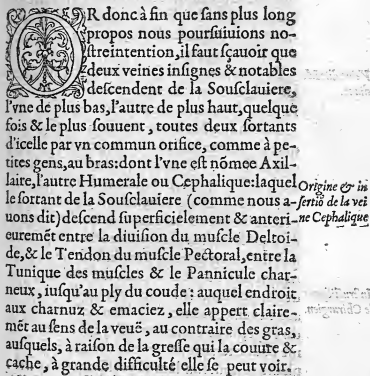 OR donc à fin que ſans plus long
propos nous pourſuiuions no-
ſtre intention, il faut ſçauoir que
deux veines inſignes & notables
deſcendent de la Souſclauiere,
l'vne de plus bas, l'autre de plus haut, quelque
fois & le plus ſouuent, toutes deux ſortants
d'icelle par vn commun orifice, comme à pe-
tites gens, au bras: dont l'vne eſt nōmee Axil-
laire, l'autre Humerale ou Cephalique: laquel
le ſortant de la Souſclauiere (comme nous a-
uons dit) deſcend ſuperficielement & anteri-
euremēt entre la diuiſion du muſcle Deltoi-
de, & le Tendon du muſcle Pectoral, entre la
Tunique des muſcles & le Pannicule char-
neux, iuſqu'au ply du coude: auquel endroit
aux charnuz & emaciez, elle appert claire-
mēt au ſens de la veuë, au contraire des gras,
auſquels, à raiſon de la greſſe qui la couure &
cache, à grande difficulté elle ſe peut voir.
Origine & in
ſertiō de la vei
ne Cephalique